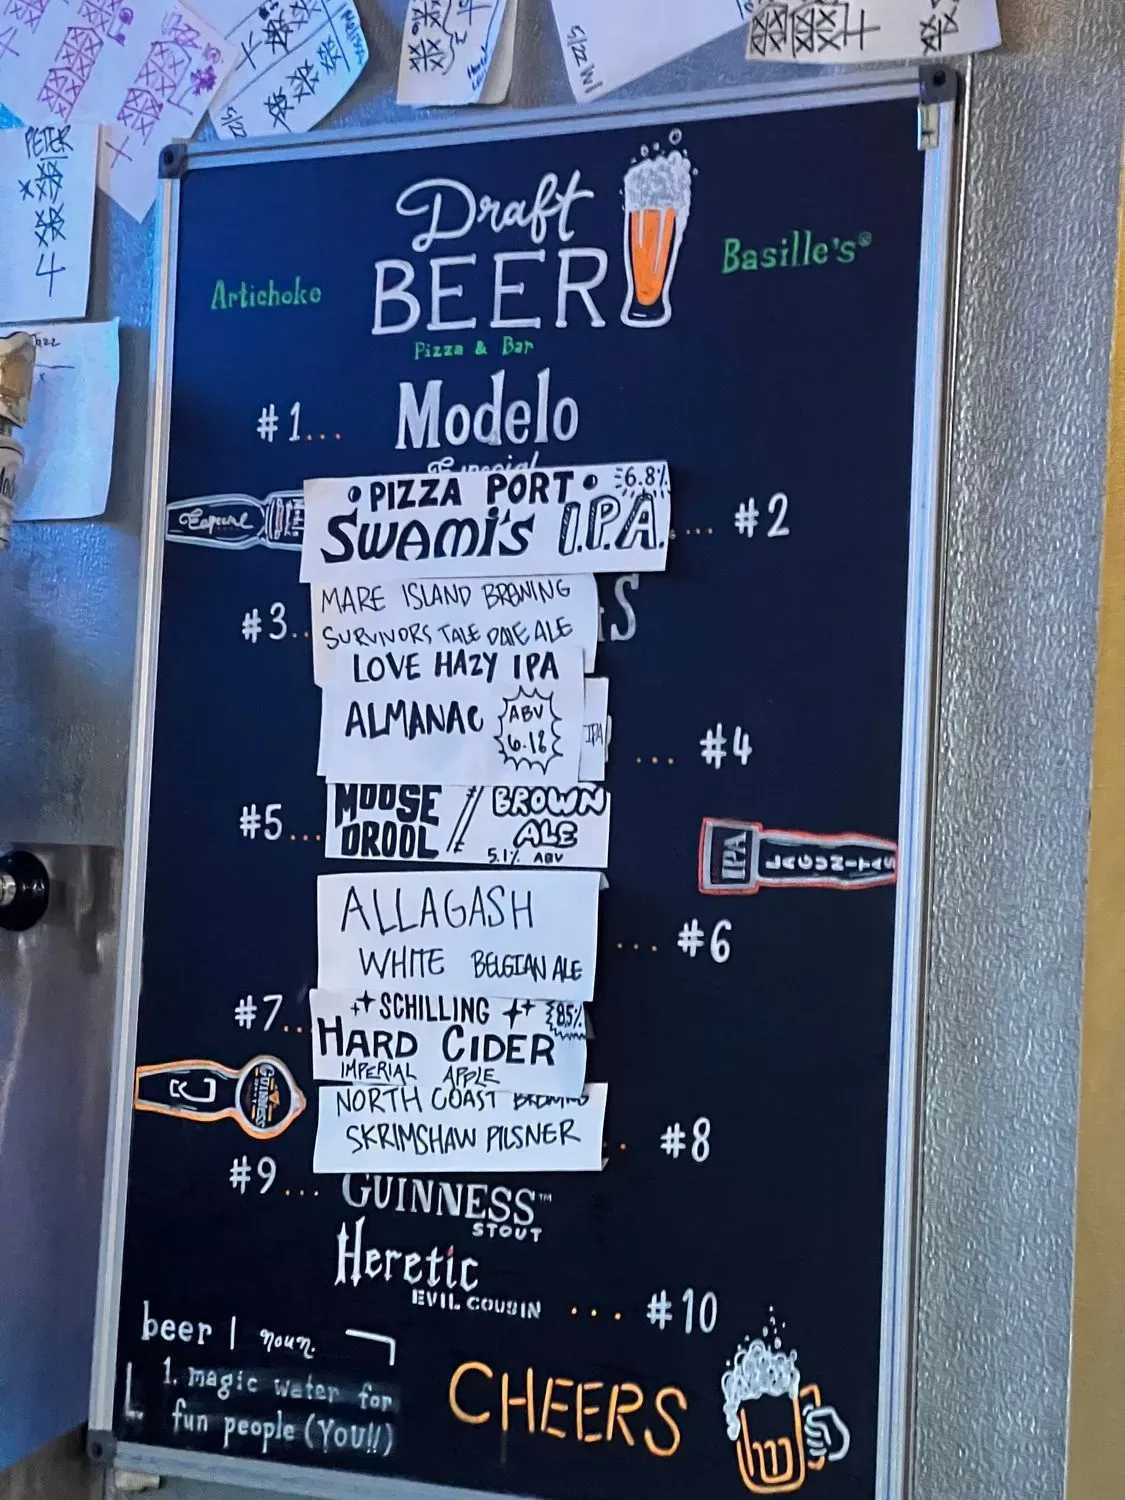 PETER
4
5/22
Melissa
5/22
Jazz
x
Draft
BEER
Artichoke
Basille's®
Pizza & Bar
#1...
Modelo
Especial
Especial
• PIZZA PORT • 6.8%
SWAMI'S I.P.A.
... #2
#3..
MARE ISLAND BREWING
SURVIVORS TALE PALE ALE
S
LOVE HAZY IPA
ALMANAC
ABV
6.1%
IPA
... #4
#5...
MOOSE
DROOL
//
BROWN
ALE
5.1% ABV
IPA
LAGUNITAS
ALLAGASH
WHITE BELGIAN ALE
... #6
#7..
SCHILLING
8.5%
HARD CIDER
IMPERIAL APPLE
GUINNESS
NORTH COAST BREWING
SKRIMSHAW PILSNER
.. #8
#9...
GUINNESS™
STOUT
Heretic
EVIL COUSIN
... #10
beer | noun.
1. magic water for
fun people (YOU!!)
CHEERS